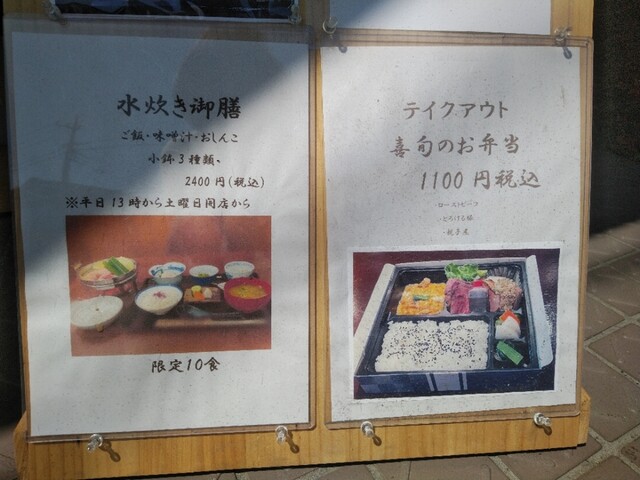 水炊き御膳
ご飯・味噌汁・おしんこ
小鉢3種類、
2400円(税込)
※平日13時から土曜日開店から
限定10食
テイクアウト
喜旬のお弁当
1100円税込